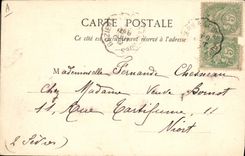 A
CARTE POSTALE
Ce côté est exclusivement réservé à l'adresse
Mademoiselle Fernande Chesneau
Chez Madame Veuve Boinot
11, Rue Tartifume, 11
Niort
(2 Sèvres)